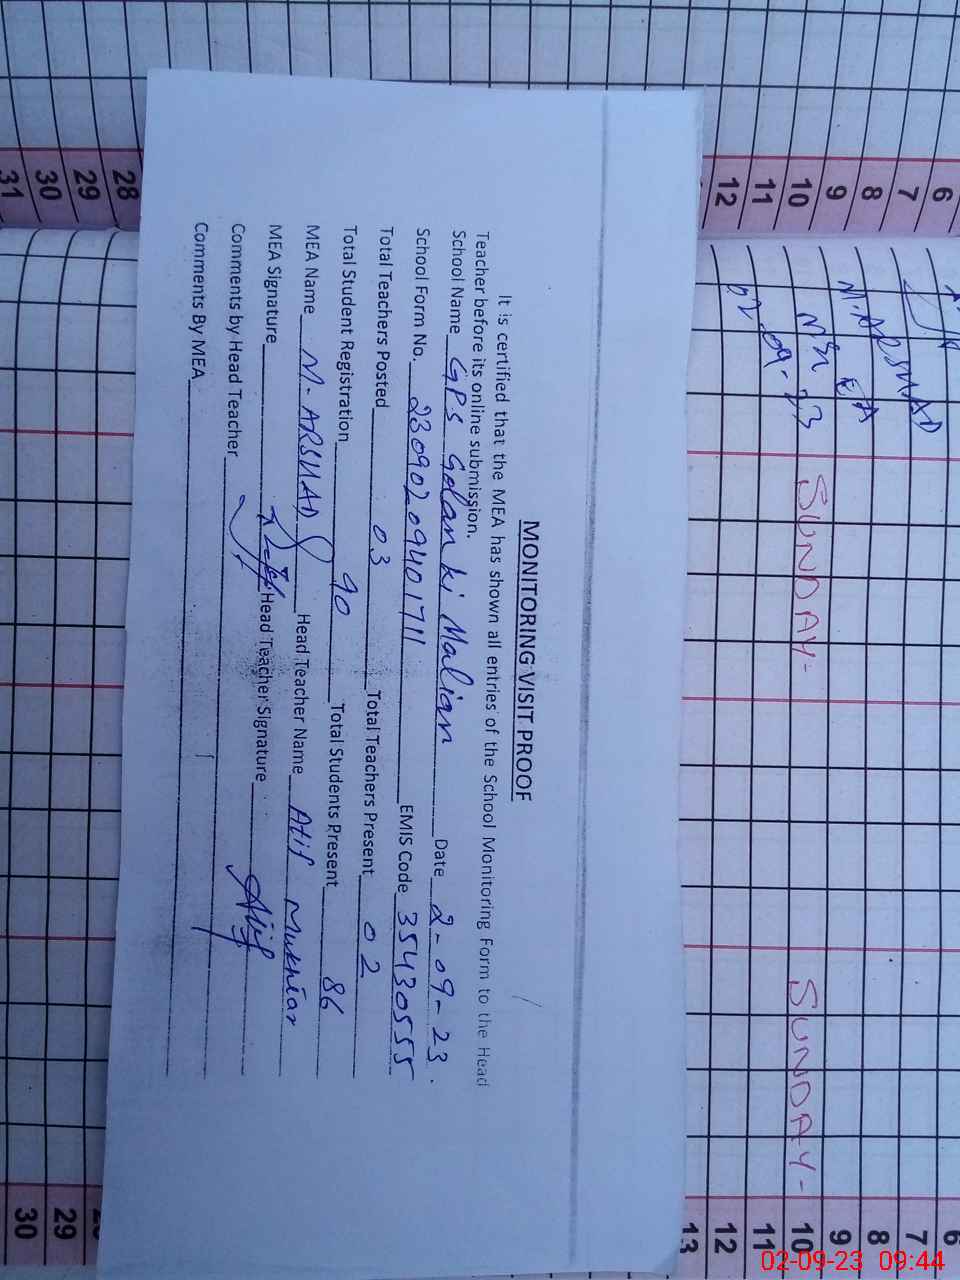 MONITORING VISIT PROOF
It is certified that the MEA has shown all entries of the School Monitoring Form to the Head
Teacher before its online submission.
School Name GPS Golan ki Malian Date 2-09-23.
School Form No. 23090209401711 EMIS Code 35430555
Total Teachers Posted 03 Total Teachers Present 02
Total Student Registration 90 Total Students Present 86
MEA Name M. ARSHAD Head Teacher Name Atif Mukhtar
MEA Signature Head Teacher Signature Atif
Comments by Head Teacher
Comments By MEA
28
29
30
31
6
7
8
9
10
11
12
M. ARSHAD
EA
02-09-23
SUNDAY-
SUNDAY-
6
7
8
9
10
11
12
13
29
30
02-09-23 09:44